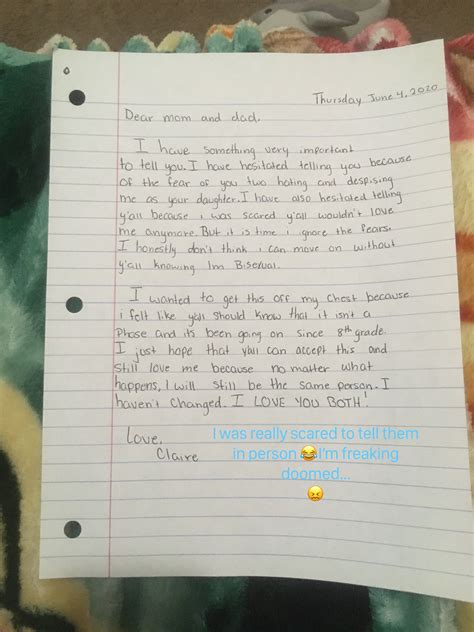 Thursday June 4, 2020
Dear mom and dad,
I have something very important
to tell you. I have hesitated telling you because
of the fear of you two hating and despising
me as your daughter. I have also hesitated telling
y'all because i was scared y'all wouldn't love
me anymore. But it is time i ignore the fears.
I honestly don't think i can move on without
y'all knowing Im Bisexual.
I wanted to get this off my chest because
i felt like y'all should know that it isn't a
Phase and its been going on since 8th grade.
I just hope that y'all can accept this and
still love me because no matter what
happens, I will still be the same person. I
haven't changed. I LOVE YOU BOTH!
Love,
Claire
I was really scared to tell them
in person 😂I'm freaking
doomed...
😖